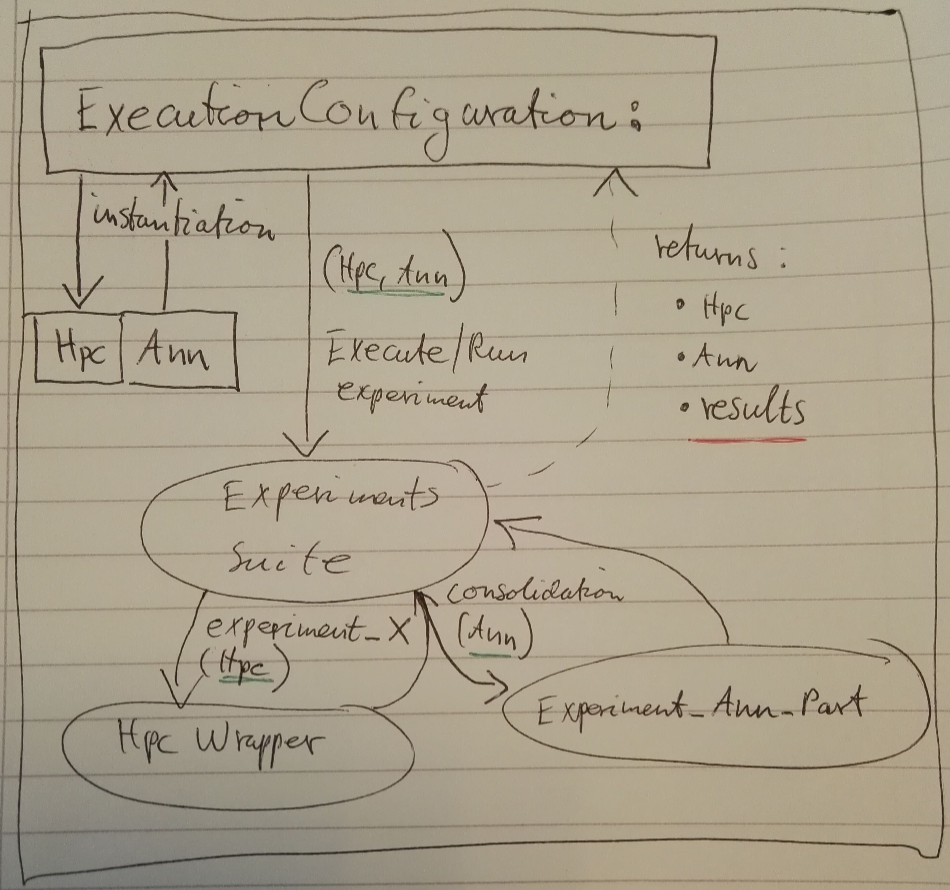 ExecutionConfiguration:
instantiation
Hpc Ann
(Hpc, Ann)
Execute/Run
experiment
returns:
• Hpc
• Ann
• results
Experiments
Suite
experiment_X
(Hpc)
consolidation
(Ann)
Hpc Wrapper
Experiment_Ann_Part